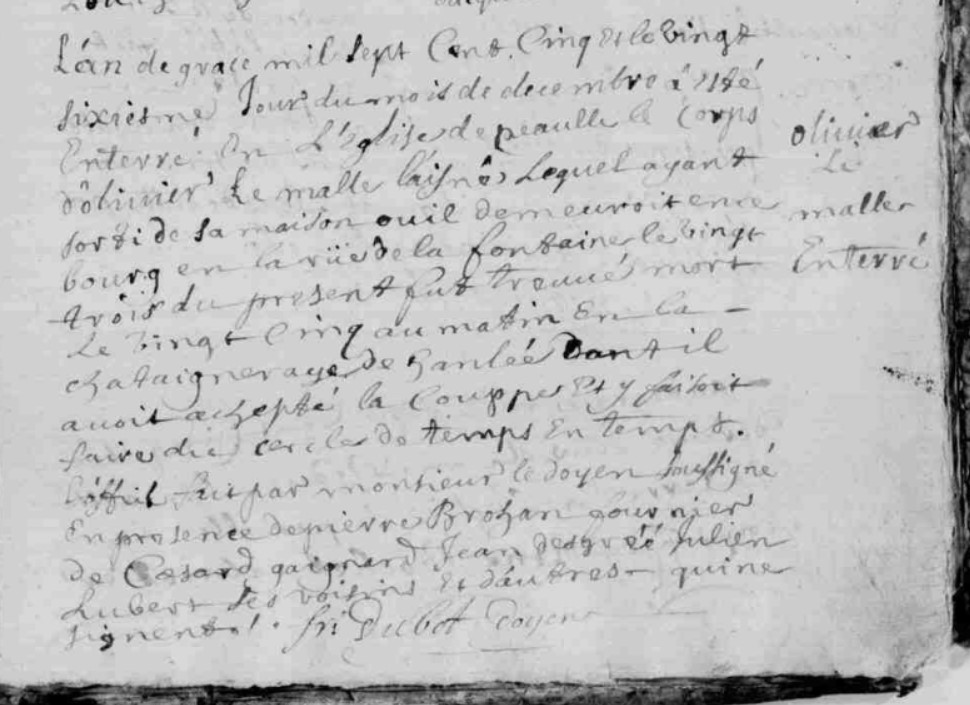 L'an de grace mil sept Cent Cinq et le vingt
sixiesme Jour du mois de decembre à esté
Enterré En L'Eglise de peaulle le Corps
d'ôlivier Le malle laisné Lequel ayant
sorti de sa maison ou il demeuroit en ce
bourg en la rüe de la fontaine le vingt
trois du present fut trouué mort
Le vingt Cinq au matin En la
chataigneraye de dont il
auoit achepté la Couppe Et y faisoit
faire du cercle de temps En temps.
L'office fait par monsieur le doyen soussigné
En presence de pierre Brohan fournier
de Cesard gaignard Jean desgréé Julien
Lubert ses voisins Et d'autres qui ne
signent. Dubot doyen
olivier
Le
malle
Enterré